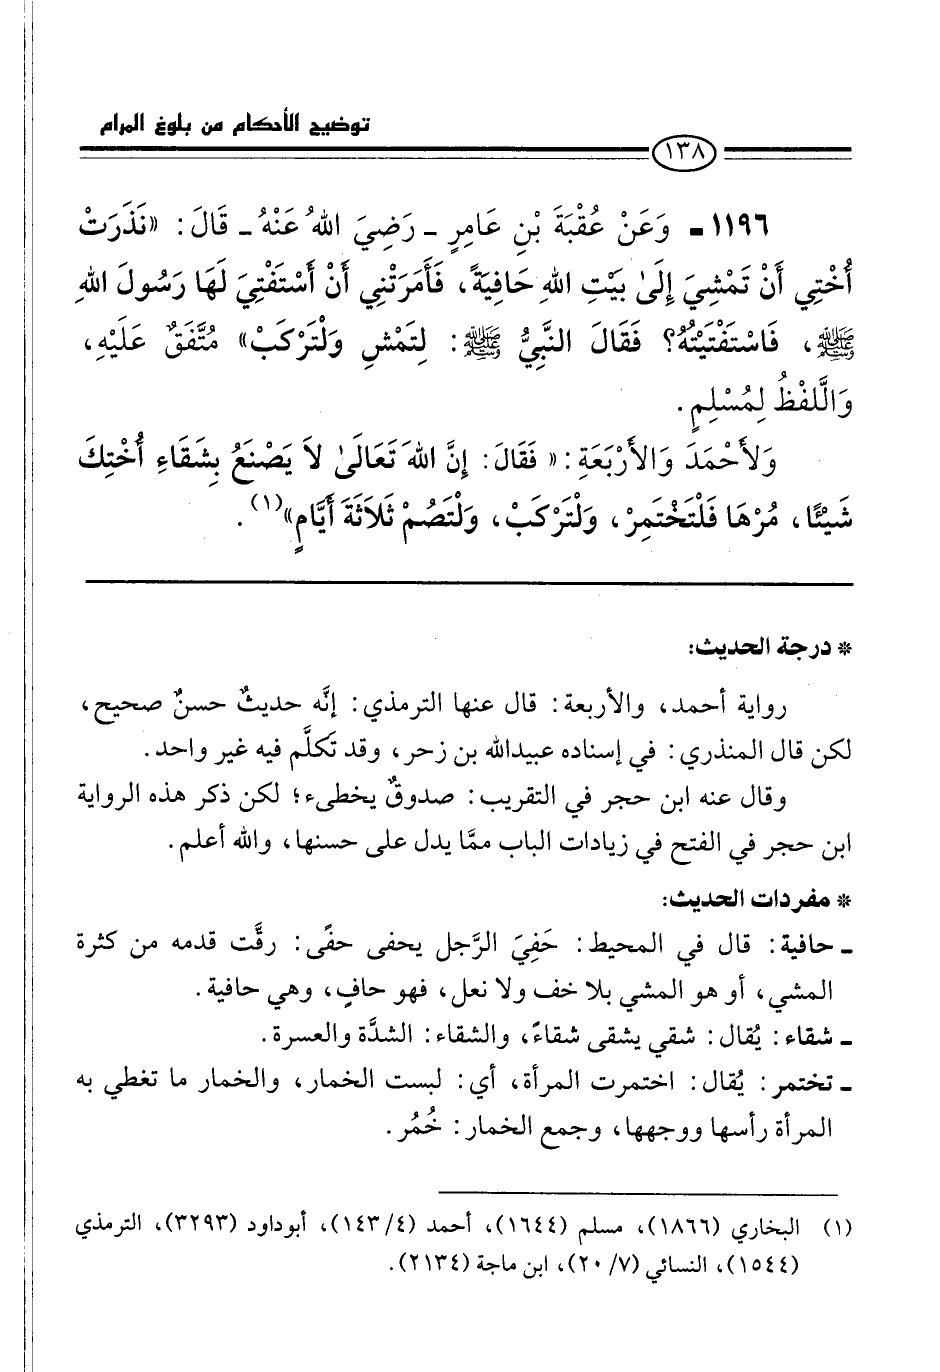 توضيح الأحكام من بلوغ المرام
١٣٨
١١٩٦ - وَعَنْ عُقْبَةَ بْنِ عَامِرٍ - رَضِيَ اللهُ عَنْهُ - قَالَ: «نَذَرَتْ
أُخْتِي أَنْ تَمْشِيَ إِلَىٰ بَيْتِ اللهِ حَافِيَةً، فَأَمَرَتْنِي أَنْ أَسْتَفْتِيَ لَهَا رَسُولَ اللهِ
ﷺ، فَاسْتَفْتَيْتُهُ؟ فَقَالَ النَّبِيُّ ﷺ: لِتَمْشِ وَلْتَرْكَبْ» مُتَّفَقٌ عَلَيْهِ،
وَالَّلفْظُ لِمُسْلِمٍ.
وَلأَحْمَدَ وَالأَرْبَعَةِ: «فَقَالَ: إِنَّ اللهَ تَعَالَىٰ لاَ يَصْنَعُ بِشَقَاءِ أُخْتِكَ
شَيْئًا، مُرْهَا فَلْتَخْتَمِرْ، وَلْتَرْكَبْ، وَلْتَصُمْ ثَلاَثَةَ أَيَّامٍ»(١).
* درجة الحديث:
رواية أحمد، والأربعة: قال عنها الترمذي: إنَّه حديثٌ حسنٌ صحيح،
لكن قال المنذري: في إسناده عبيدالله بن زحر، وقد تكلَّم فيه غير واحد.
وقال عنه ابن حجر في التقريب: صدوقٌ يخطىء؛ لكن ذكر هذه الرواية
ابن حجر في الفتح في زيادات الباب ممَّا يدل على حسنها، والله أعلم.
* مفردات الحديث:
- حافية: قال في المحيط: حَفِيَ الرَّجل يحفى حفًى: رقَّت قدمه من كثرة
المشي، أو هو المشي بلا خف ولا نعل، فهو حافٍ، وهي حافية.
- شقاء: يُقال: شقي يشقى شقاءً، والشقاء: الشدَّة والعسرة.
- تختمر: يُقال: اختمرت المرأة، أي: لبست الخمار، والخمار ما تغطي به
المرأة رأسها ووجهها، وجمع الخمار: خُمُر.
(١) البخاري (١٨٦٦)، مسلم (١٦٤٤)، أحمد (٤/ ١٤٣)، أبوداود (٣٢٩٣)، الترمذي
(١٥٤٤)، النسائي (٧/ ٢٠)، ابن ماجة (٢١٣٤).